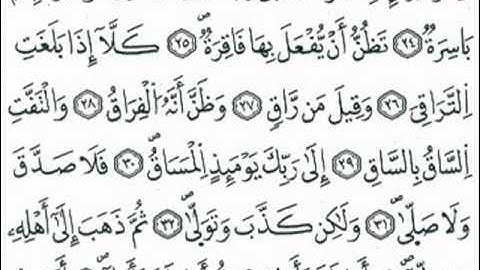 بَاسِرَةٌ ٢٤ تَظُنُّ أَنْ يُّفْعَلَ بِهَا فَاقِرَةٌ ٢٥ كَلَّآ إِذَا بَلَغَتِ
اِ۬لتَّرَاقِيَ ٢٦ وَقِيلَ مَن رَّاقٖ ٢٧ وَظَنَّ أَنَّهُ اُ۬لْفِرَاقُ ٢٨ وَالْتَفَّتِ
اِ۬لسَّاقُ بِالسَّاقِ ٢٩ إِلَىٰ رَبِّكَ يَوْمَئِذٍ اِ۬لْمَسَاقُ ٣٠ فَلَا صَدَّقَ
وَلَا صَلَّىٰ ٣١ وَلَٰكِن كَذَّبَ وَتَوَلَّىٰ ٣٢ ثُمَّ ذَهَبَ إِلَىٰٓ أَهْلِهِۦ